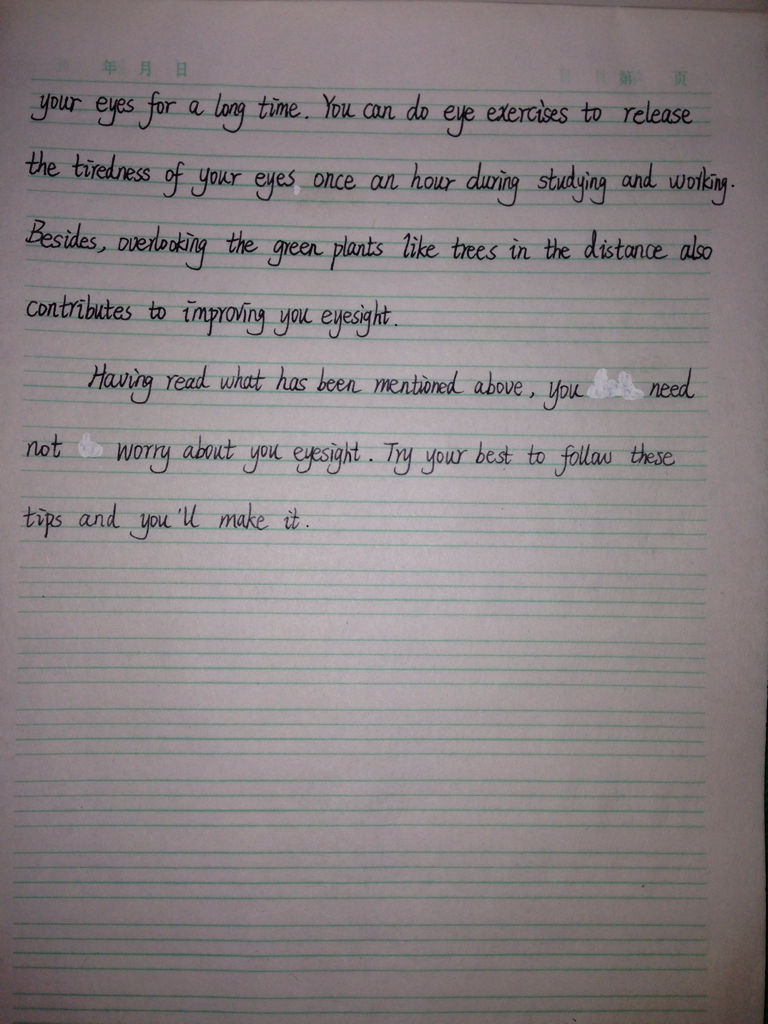 年 月 日 第 页
your eyes for a long time. You can do eye exercises to release
the tiredness of your eyes once an hour during studying and working.
Besides, overlooking the green plants like trees in the distance also
contributes to improving you eyesight.
Having read what has been mentioned above, you need
not worry about you eyesight. Try your best to follow these
tips and you'll make it.